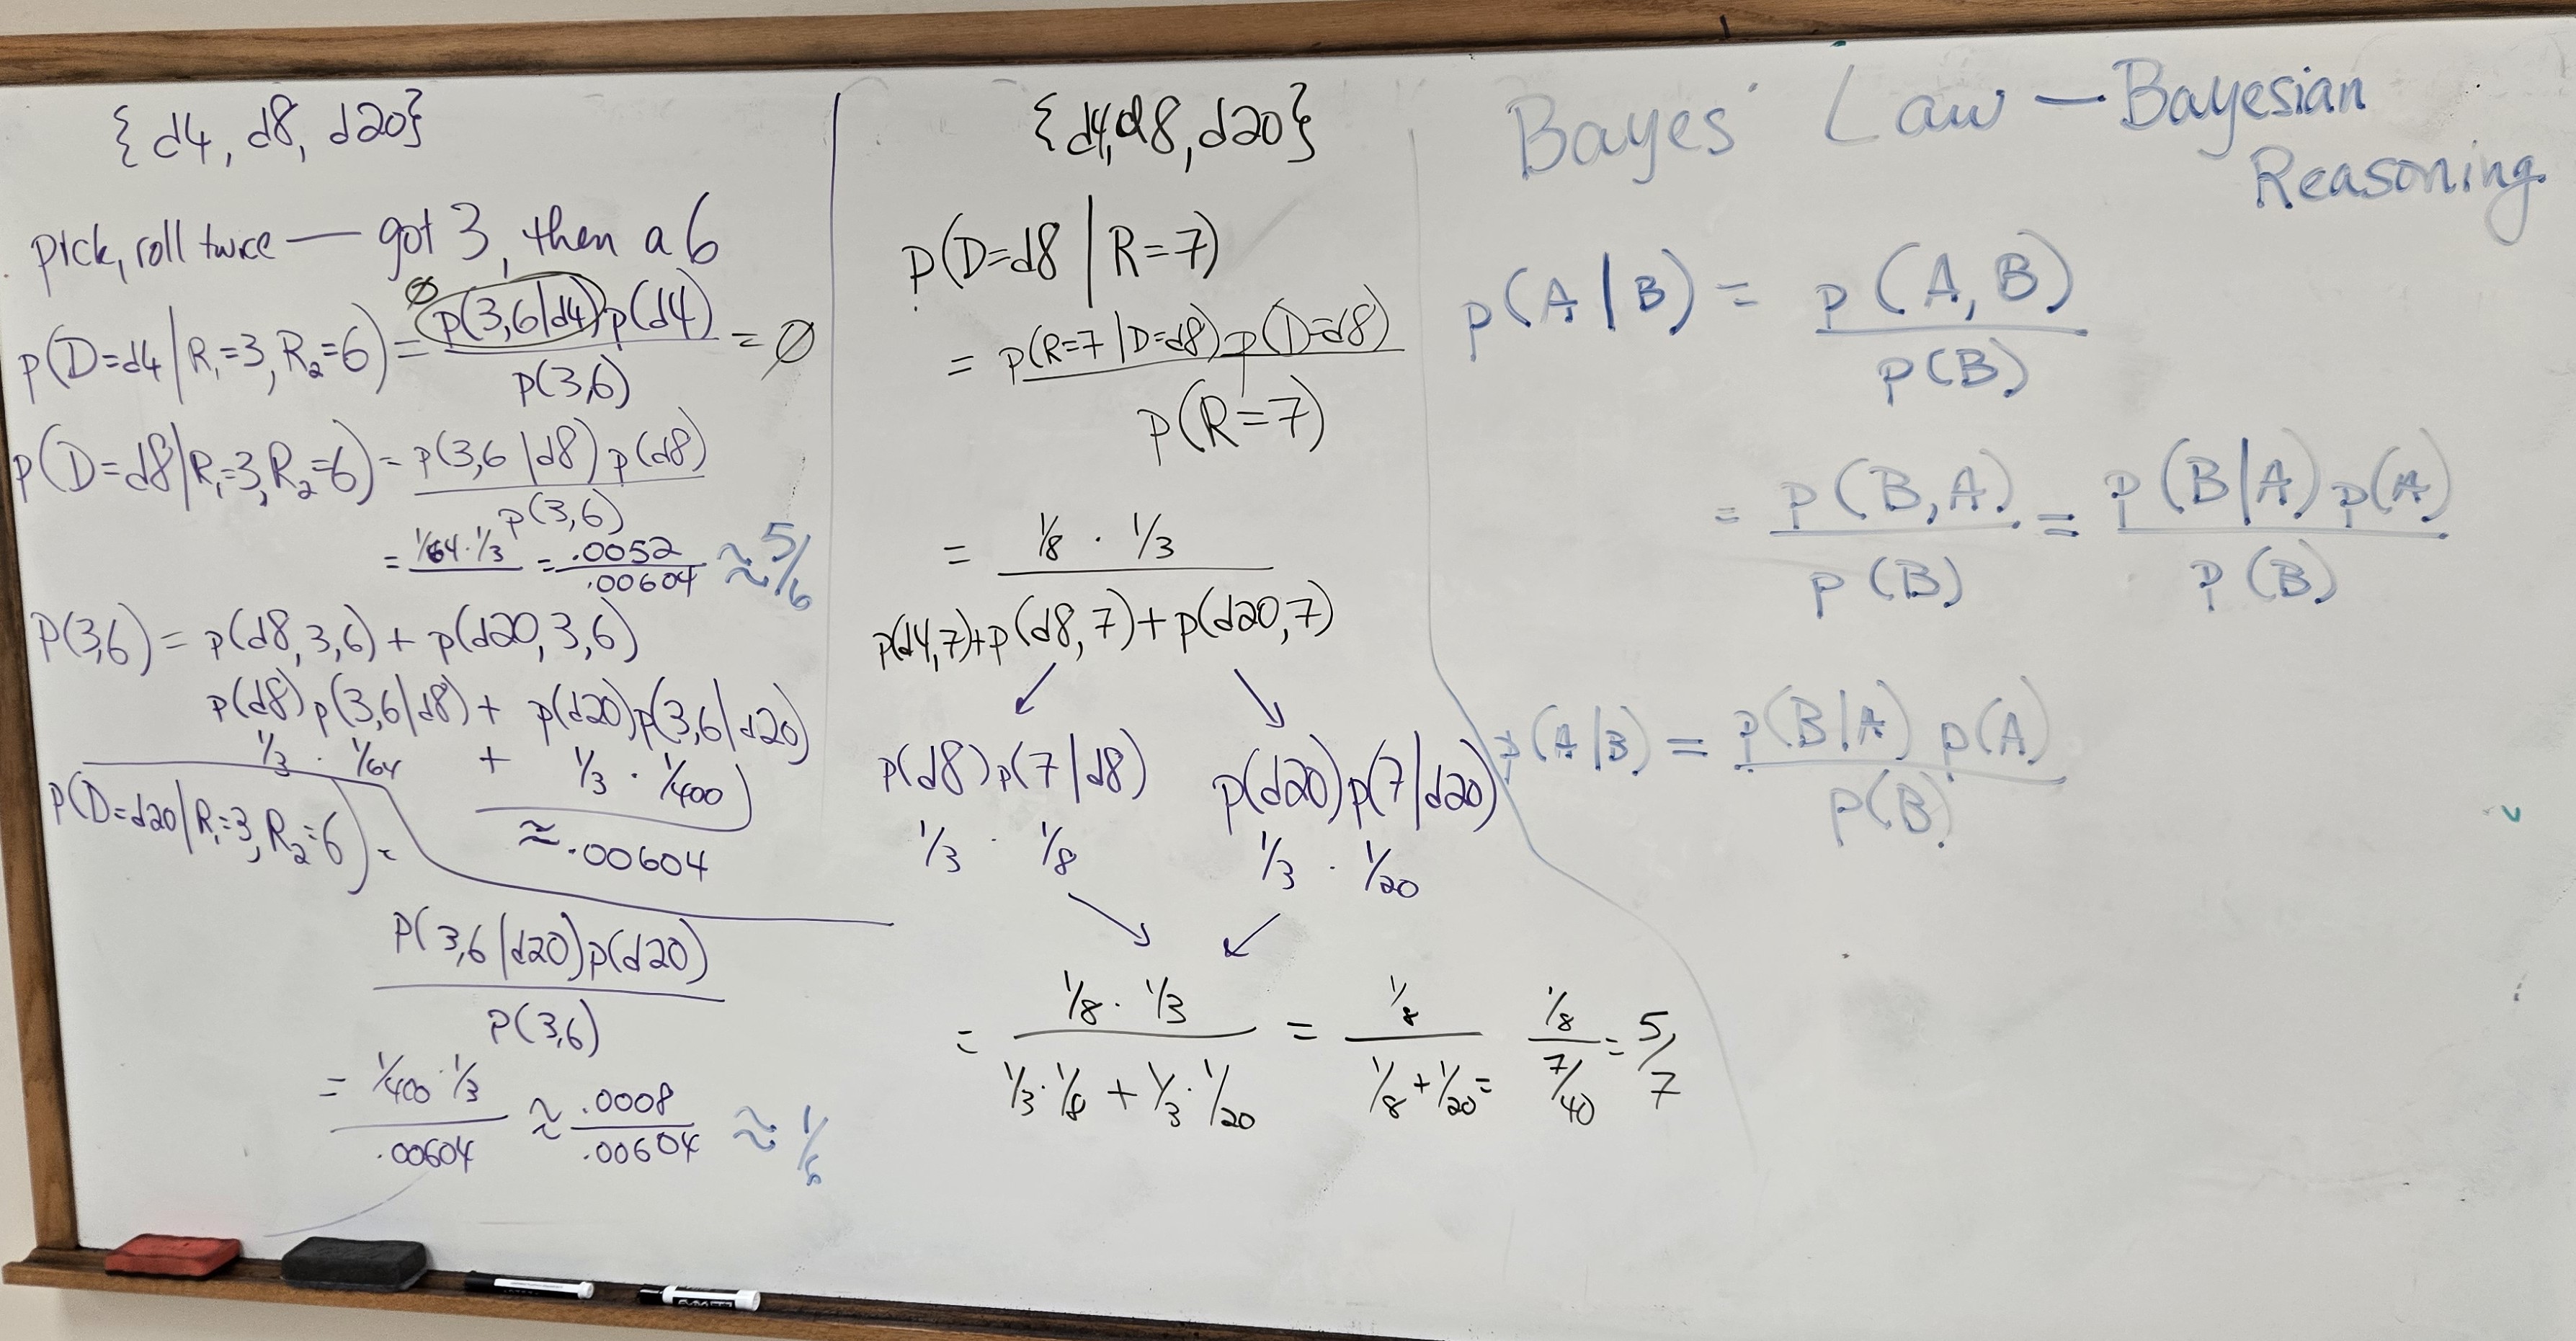 {d4, d8, d20}
pick, roll twice — got 3, then a 6
p(D=d4 | R₁=3, R₂=6) = p(3,6|d4) p(d4) / p(3,6) = ∅
∅
p(D=d8 | R₁=3, R₂=6) = p(3,6|d8) p(d8) / p(3,6)
= 1/64 · 1/3 = .0052 / .00604 ≈ 5/6
P(3,6) = p(d8,3,6) + p(d20,3,6)
p(d8) p(3,6|d8) + p(d20) p(3,6|d20)
1/3 · 1/64 + 1/3 · 1/400
≈ .00604
p(D=d20 | R₁=3, R₂=6) =
P(3,6|d20) p(d20) / P(3,6)
= 1/400 · 1/3 / .00604 ≈ .0008 / .00604 ≈ 1/6
{d4, d8, d20}
p(D=d8 | R=7)
= p(R=7 | D=d8) p(D=d8) / p(R=7)
= 1/8 · 1/3
p(d4,7) + p(d8,7) + p(d20,7)
p(d8) p(7|d8) p(d20) p(7|d20)
1/3 · 1/8 1/3 · 1/20
= 1/8 · 1/3 / 1/3 · 1/8 + 1/3 · 1/20 = 1/8 / 1/8 + 1/20 = 1/8 / 7/40 = 5/7
Bayes' Law — Bayesian
Reasoning
p(A|B) = p(A,B) / p(B)
= p(B,A) / p(B) = p(B|A) p(A) / p(B)
p(A|B) = p(B|A) p(A) / p(B)